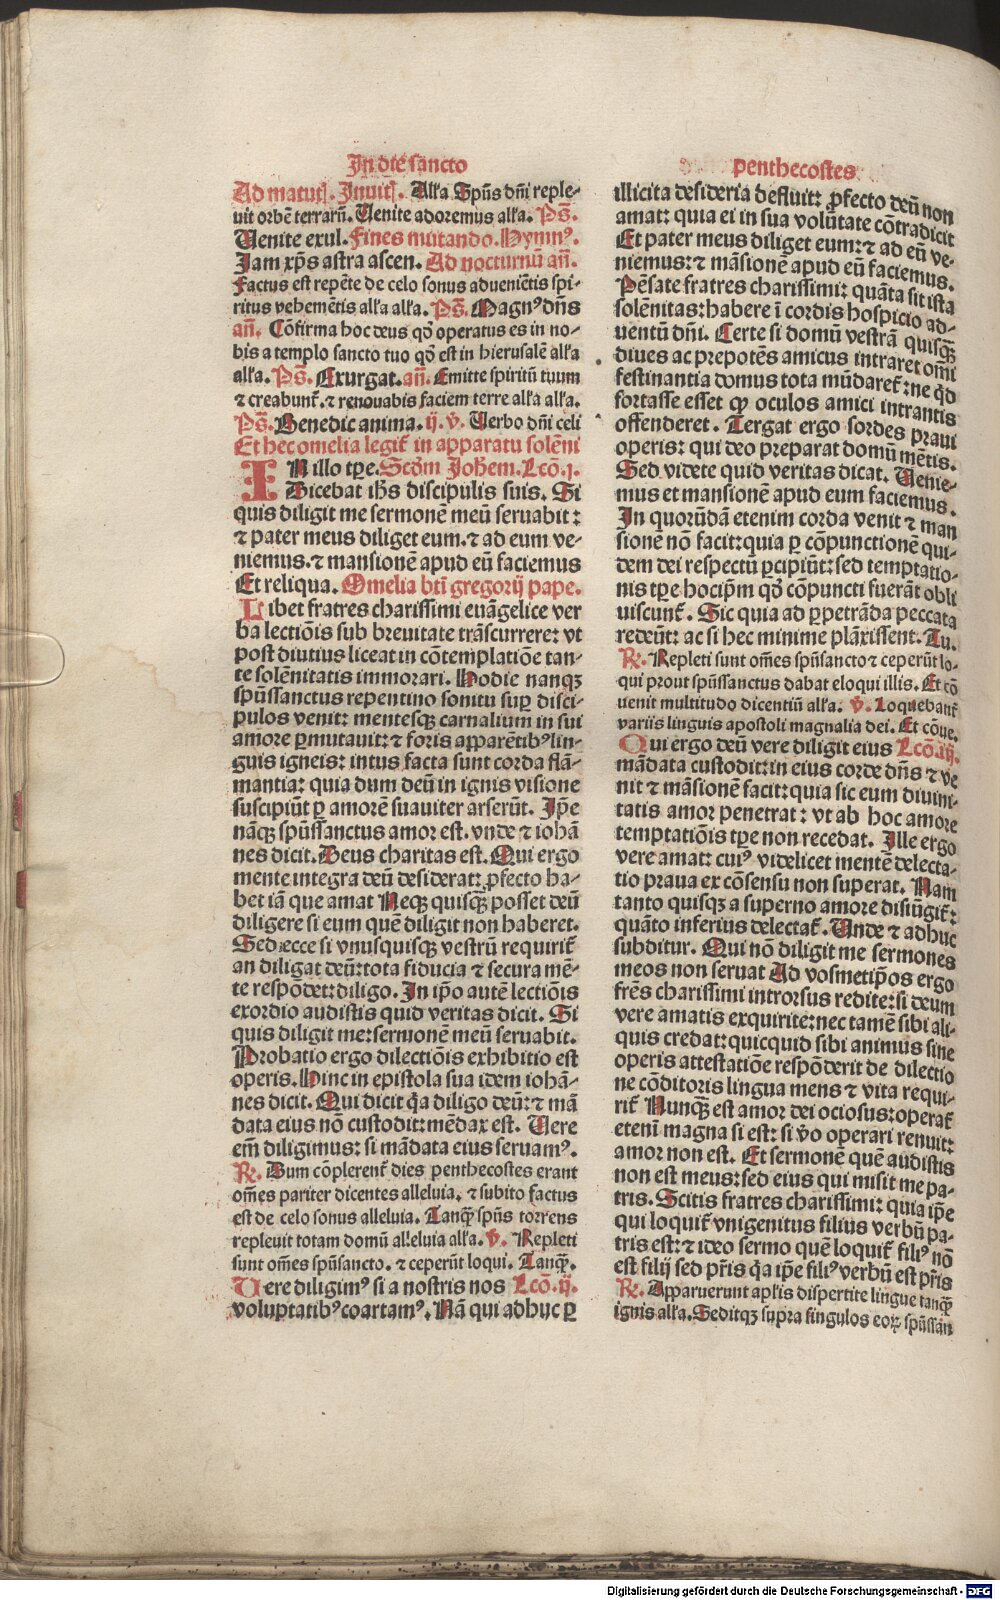 In die sancto
Ad matut͛. Inuit͛. Alľa Sp̃us dñi reple-
uit orbẽ terrarũ. Uenite adoremus alľa. Ps̃.
Uenite exul. Fines mutando. Hymnꝰ.
Iam xp̃s astra ascen. Ad nocturnũ añ.
Factus est repẽte de celo sonus adueniẽtis spi-
ritus vehemẽtis alľa alľa. Ps̃. Magnꝰ dñs
añ. Cõfirma hoc deus qď operatus es in no-
bis a templo sancto tuo qď est in hierusalẽ alľa
alľa. Ps̃. Exurgat. añ. Emitte spiritũ tuum
⁊ creabunt᷑. ⁊ renouabis faciem terre alľa alľa.
Ps̃. Benedic anima. ij. v̑. Uerbo dñi celi
Et hec omelia legit᷑ in apparatu solẽni
IN illo tp̃e. Scďm Joh̃em. Lcõ. j.
Dicebat ih̃s discipulis suis. Si
quis diligit me sermonẽ meũ seruabit:
⁊ pater meus diliget eum. ⁊ ad eum ve-
niemus. ⁊ mansionẽ apud eũ faciemus
Et reliqua. Omelia bt̃i gregorij pape.
Libet fratres charissimi euãgelice ver
ba lectiõis sub breuitate trãscurrere: vt
post diutius liceat in cõtemplatiõe tan-
te solẽnitatis immorari. Hodie nanqꝫ
sp̃ussanctus repentino sonitu sup̱ disci-
pulos venit: mentesqꝫ carnalium in sui
amore p̱mutauit: ⁊ foris apparẽtibꝰ lin-
guis igneis: intus facta sunt corda flã-
mantia: quia dum deũ in ignis visione
suscipiũt p̱ amorẽ suauiter arserũt. Ip̃e
nãqꝫ sp̃ussanctus amor est. vnde ⁊ iohã
nes dicit. Deus charitas est. Qui ergo
mente integra deũ desiderat: ꝓfecto ha-
bet iã que amat Neqꝫ quisqꝫ posset deũ
diligere si eum quẽ diligit non haberet.
Sed ecce si vnusquisqꝫ vestrũ requirit᷑
an diligat deũ: tota fiducia ⁊ secura mẽ-
te respõdet: diligo. In ip̃o autẽ lectiõis
exordio audistis quid veritas dicit. Si
quis diligit me: sermonẽ meũ seruabit.
Probatio ergo dilectiõis exhibitio est
operis. Hinc in epistola sua idem iohã-
nes dicit. Qui dicit q̃a diligo deũ: ⁊ mã
data eius nõ custodit: mẽdax est. Uere
em̃ diligimus: si mãdata eius seruamꝰ.
℟. Dum cõplerent᷑ dies penthecostes erant
om̃es pariter dicentes alleluia. ⁊ subito factus
est de celo sonus alleluia. Tanqꝫ sp̃us torrens
repleuit totam domũ alleluia alľa. v̑. Repleti
sunt om̃es sp̃usancto. ⁊ ceperũt loqui. Tanqꝫ.
Uere diligimꝰ si a nostris nos Lcõ. ij.
voluptatibꝰ coartamꝰ. Nã qui adhuc p̱
penthecostes
illicita desideria defluit: ꝓfecto deũ non
amat: quia ei in sua volũtate cõtradicit
Et pater meus diliget eum: ⁊ ad eũ ve-
niemus: ⁊ mãsionẽ apud eũ faciemus.
Pẽsate fratres charissimi: quãta sit ista
solẽnitas: habere ĩ cordis hospicio ad-
uentũ dñi. Certe si domũ vestrã quisqꝫ
diues ac prepotẽs amicus intraret om̃i
festinantia domus tota mũdaret᷑: ne q̇d
fortasse esset qꝫ oculos amici intrantis
offenderet. Tergat ergo sordes praui
operis: qui deo preparat domũ mẽtis.
Sed videte quid veritas dicat. Uenie-
mus et mansionẽ apud eum faciemus.
In quorũdã etenim corda venit ⁊ man
sionẽ nõ facit: quia p̱ cõpunctionẽ qui-
dem dei respectũ p̱cipiũt: sed temptatio-
nis tp̃e hocip̃m qď cõpuncti fuerãt obli
uiscunt᷑. Sic quia ad p̱petrãda peccata
redeũt: ac si hec minime plãxissent. Tu.
℟. Repleti sunt om̃es sp̃usancto ⁊ ceperũt lo-
qui prout sp̃ussanctus dabat eloqui illis. Et cõ
uenit multitudo dicentiũ alľa. v̑. Loquebant᷑
variis linguis apostoli magnalia dei. Et cõue.
Qui ergo deũ vere diligit eius Lcõ. iij.
mãdata custodit: in eius corde dñs ⁊ ve
nit ⁊ mãsionẽ facit: quia sic eum diuini-
tatis amor penetrat: vt ab hoc amore
temptatiõis tp̃e non recedat. Ille ergo
vere amat: cuiꝰ videlicet mentẽ delecta-
tio praua ex cõsensu non superat. Nam
tanto quisqꝫ a superno amore disiũgit᷑:
quãto inferius delectat᷑. Unde ⁊ adhuc
subditur. Qui nõ diligit me sermones
meos non seruat Ad vosmetip̃os ergo
frẽs charissimi introrsus redite: si deum
vere amatis exquirite: nec tamẽ sibi ali-
quis credat: quicquid sibi animus sine
operis attestatiõe respõderit de dilectio
ne cõditoris lingua mens ⁊ vita requi-
rit᷑ Nunqꝫ est amor dei ociosus: operat᷑
etenĩ magna si est: si v̑o operari renuit:
amor non est. Et sermonẽ quẽ audistis
non est meus: sed eius qui misit me pa-
tris. Scitis fratres charissimi: quia ip̃e
qui loquit᷑ vnigenitus filius verbũ pa-
tris est: ⁊ ideo sermo quẽ loquit᷑ filiꝰ nõ
est filij sed pr̃is q̃a ip̃e filiꝰ verbũ est pr̃is
℟. Apparuerunt apľis dispertite lingue tanqꝫ
ignis alľa. Seditqꝫ supra singulos eoꝝ sp̃ussan
Digitalisierung gefördert durch die Deutsche Forschungsgemeinschaft - DFG